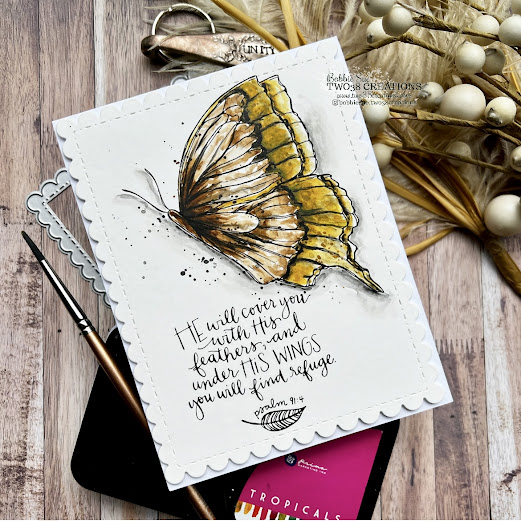 UNITY
TWO38 CREATIONS
HE will cover you
with His
feathers, and
under HIS WINGS
you will find refuge.
psalm 91:4
Prima
TROPICALS